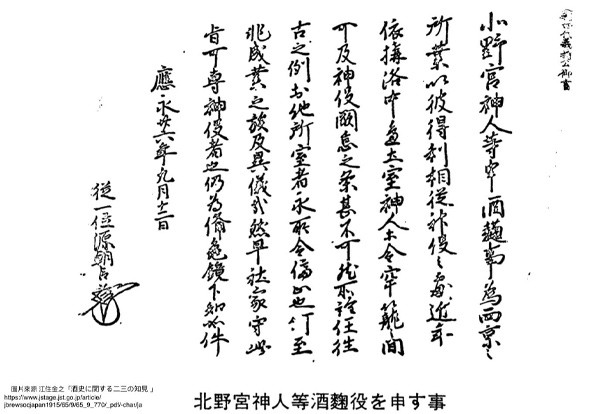 義持公御書
北野宮神人等申酒麹事為西京之
所業以彼得利相従神役之處近年
依構洛中立室神人等令牢籠間
可及神役闕怠之条甚不可然所詮任往
古之例於他所室者永所令停止也
成業之族及異儀哉然早社家守此
旨可専神役者也仍為備亀鏡下知如件
應永廿六年九月十二日
従一位源朝臣
圖片來源 江住金之「酒史に関する二三の知見」
https://www.jstage.jst.go.jp/article/
jbrewsocjapan1915/65/9/65_9_770/_pdf/-char/ja
北野宮神人等酒麴役を申す事